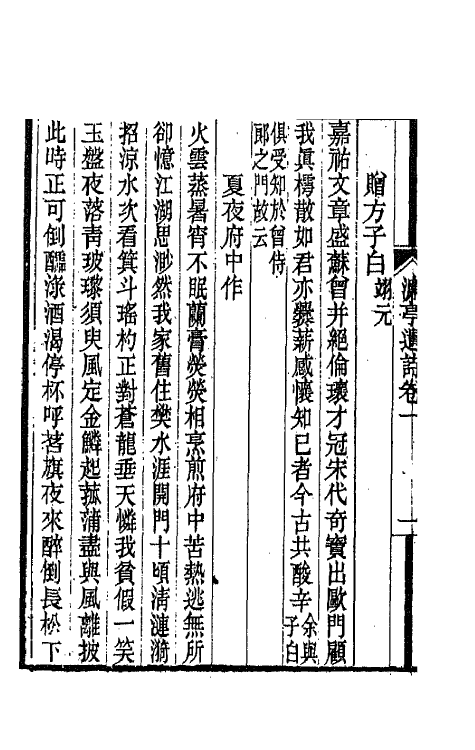 濂亭遺詩卷一
一
贈方子白翊元
嘉祐文章盛蘇曾并絕倫瓌才冠宋代奇寶出歐門顧
我眞樗散如君亦爨薪感懷知己者今古共酸辛余與子白
俱受知於曾侍郞之門故云
夏夜府中作
火雲蒸暑宵不眠蘭膏熒熒相烹煎府中苦熱逃無所
卻憶江湖思渺然我家舊住樊水涯開門十頃清漣漪
招涼水次看箕斗瑤杓正對蒼龍垂天憐我貧假一笑
玉盤夜落靑玻瓈須臾風定金鱗起菰蒲盡與風離披
此時正可倒醽淥酒渴停杯呼茗旗夜來醉倒長松下